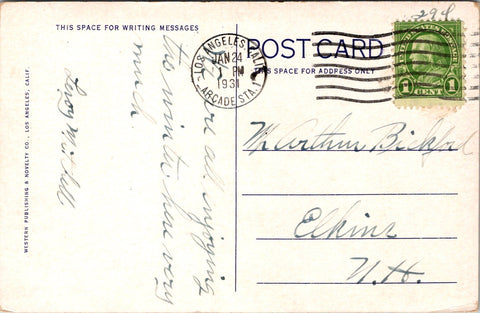 THIS SPACE FOR WRITING MESSAGES
POST CARD
THIS SPACE FOR ADDRESS ONLY
294
LOS ANGELES, CALIF.
JAN 24
PM
1931
ARCADE STA. 1
1 CENT 1
are all enjoying
the winter here very
much.
Mr Arthur Bickford
Elkins
N.H.
WESTERN PUBLISHING & NOVELTY CO., LOS ANGELES, CALIF.